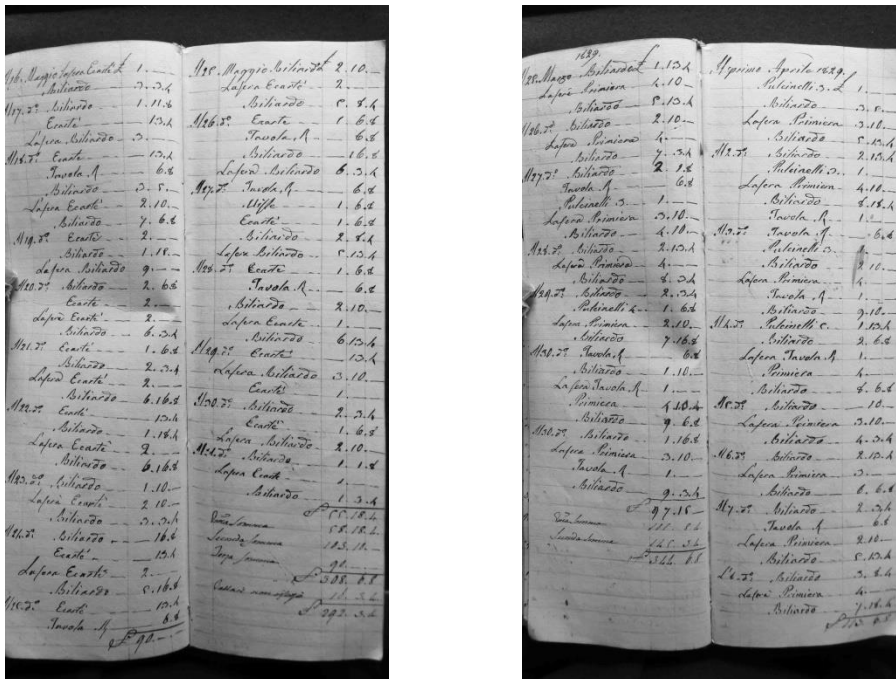 Maggio
Biliardo 3.3.4
Il 17. d.º Biliardo 1.11.8
Ecarté 13.4
La sera Biliardo 3.
Il 18. d.º Ecarté 13.4
Tavola R 6.8
Biliardo
La sera Ecarté 2.10.
Biliardo 7.6.8
Il 19. d.º Ecarté 2.
Biliardo
La sera Biliardo 9.
Il 20. d.º Biliardo 2.6.8
Ecarté 2.
La sera Ecarté 2.
Biliardo 6.3.4
Il 21. d.º Ecarté 1.6.8
Biliardo 2.3.4
La sera Ecarté 2.
Biliardo 6.16.8
Il 22. d.º Ecarté 13.4
Biliardo
La sera Ecarté 2.
Biliardo 6.16.8
Il 23. d.º Biliardo 1.10.
La sera Ecarté 2.10.
Biliardo 3.3.4
Il 24. d.º Biliardo 16.8
Ecarté 13.4
La sera Ecarté 2.
Biliardo 5.16.8
Il 25. d.º Ecarté 13.4
Tavola R 6.8
90.
Il 25 Maggio Biliardo 2.10.
La sera Ecarté 2.
Biliardo
Il 26. d.º Ecarté 1.6.8
Tavola R 6.8
Biliardo 16.8
La sera Biliardo 6.3.4
Il 27. d.º Tavola R 6.8
1.6.8
Ecarté 1.6.8
Biliardo
La sera Biliardo 5.13.4
Il 28. d.º Ecarté 1.6.8
Tavola R 6.8
Biliardo 2.10.
La sera Ecarté 1.
Biliardo 6.13.4
Il 29. d.º Ecarté 13.4
La sera Biliardo 3.10.
Ecarté 1.
Il 30. d.º Biliardo 2.3.4
Ecarté 1.6.8
La sera Biliardo 2.10.
Il 31. d.º Biliardo 1.1.8
La sera Ecarté 1.
Biliardo 1.3.4
Somma
Seconda Somma 103.11.
Somma 90.
308.6.8
292.3.4
1829.
Il 25. Marzo Biliardo 1.13.4
La sera Primiera 4.10.
Biliardo 5.13.4
Il 26. d.º Biliardo 2.10.
La sera Primiera 4.
Biliardo 7.3.4
Il 27. d.º Biliardo 2.1.8
Tavola R 6.8
Pulcinelli 3 1.
La sera Primiera 3.10.
Biliardo 4.10.
Il 28. d.º Biliardo 2.13.4
La sera Primiera 4.
Biliardo 8.3.4
Il 29. d.º Biliardo 2.3.4
Pulcinelli 4 1.6.8
La sera Primiera 2.10.
Biliardo 7.16.8
Il 30. d.º Tavola R 6.8
Biliardo 1.10.
La sera Tavola R 1.
Primiera 4.10.
Biliardo 9.6.8
Biliardo 1.16.8
La sera Primiera 3.10.
Tavola R 1.
Biliardo 9.3.4
97.15.
Somma
Seconda Somma
344.6.8
Il primo Aprile 1829.
Pulcinelli 3. 1.
Biliardo
La sera Primiera 3.10.
Biliardo 2.13.4
Pulcinelli 3. 1.
La sera Primiera 4.10.
Biliardo
Tavola R 1.
Il 3. d.º Tavola R 6.8
Pulcinelli 3
Biliardo 2.10.
La sera Primiera 4.
Tavola R 1.
Biliardo 9.10.
Il 4. d.º Pulcinelli 5. 1.13.4
Biliardo 2.6.8
La sera Tavola R 1.
Primiera 4.
Biliardo 8.6.8
Il 5. d.º Biliardo 10.
La sera Primiera 3.10.
Biliardo 4.3.4
Il 6. d.º Biliardo 2.13.4
La sera Primiera 3.
Biliardo 6.6.8
Il 7. d.º Biliardo 2.3.4
Tavola R 6.8
La sera Primiera 2.10.
Biliardo 5.13.4
Biliardo
La sera Primiera 4.
Biliardo